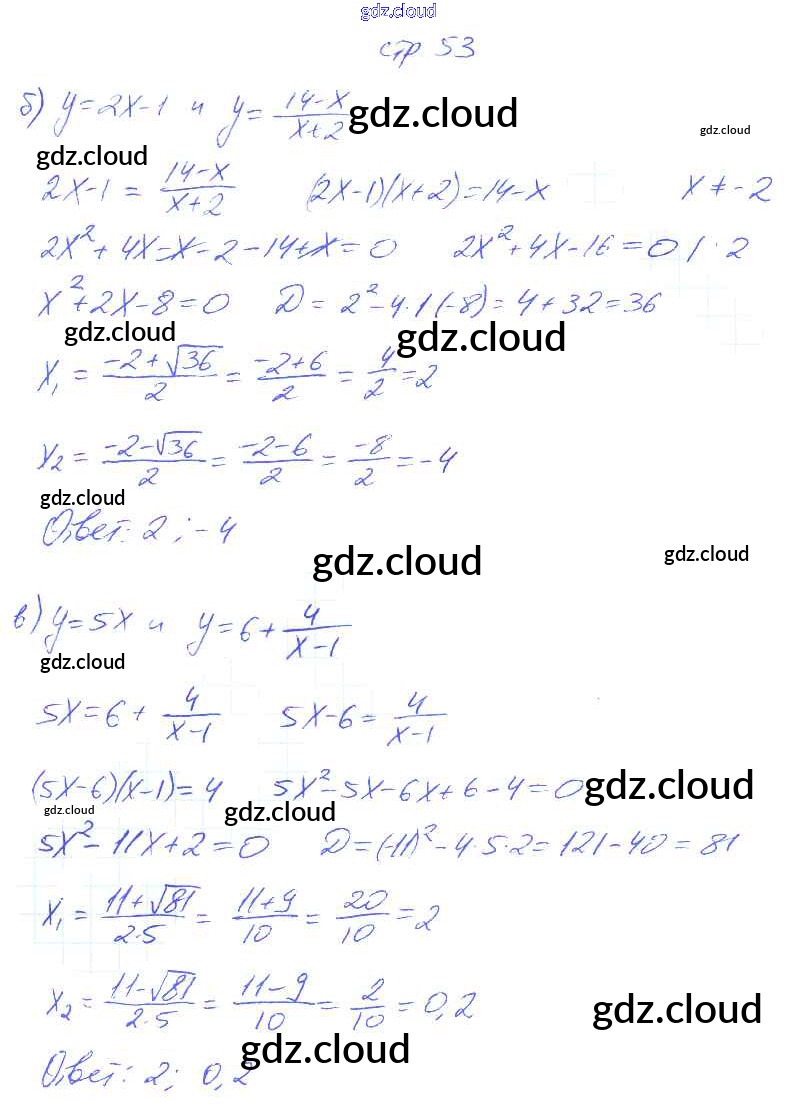 gdz.cloud
стр 53
б) y=2x-1 и y= (14-x)/(x+2) gdz.cloud
gdz.cloud
gdz.cloud
2x-1 = (14-x)/(x+2) (2x-1)(x+2)=14-x x≠-2
2x²+4x-x-2-14+x=0 2x²+4x-16=0 / · 2
x²+2x-8=0 D = 2²-4·1(-8)=4+32=36
gdz.cloud gdz.cloud
x₁ = (-2+√36)/2 = (-2+6)/2 = 4/2 =2
x₂ = (-2-√36)/2 = (-2-6)/2 = -8/2 =-4
gdz.cloud
Ответ: 2 ; -4
gdz.cloud gdz.cloud
в) y=5x и y=6+ 4/(x-1)
gdz.cloud
5x=6+ 4/(x-1) 5x-6= 4/(x-1)
(5x-6)(x-1)=4 5x²-5x-6x+6-4=0 gdz.cloud
gdz.cloud gdz.cloud
5x²-11x+2=0 D=(-11)²-4·5·2=121-40=81
x₁ = (11+√81)/(2·5) = (11+9)/10 = 20/10 =2
x₂ = (11-√81)/(2·5) = (11-9)/10 = 2/10 =0,2
gdz.cloud
gdz.cloud
Ответ: 2; 0,2